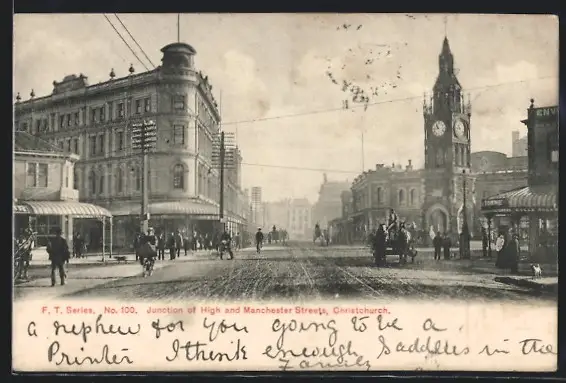 ENV
F. T. Series. No. 100. Junction of High and Manchester Streets, Christchurch.
a nephew for you going to be a
Printer I think enough Saddlers in the
Family